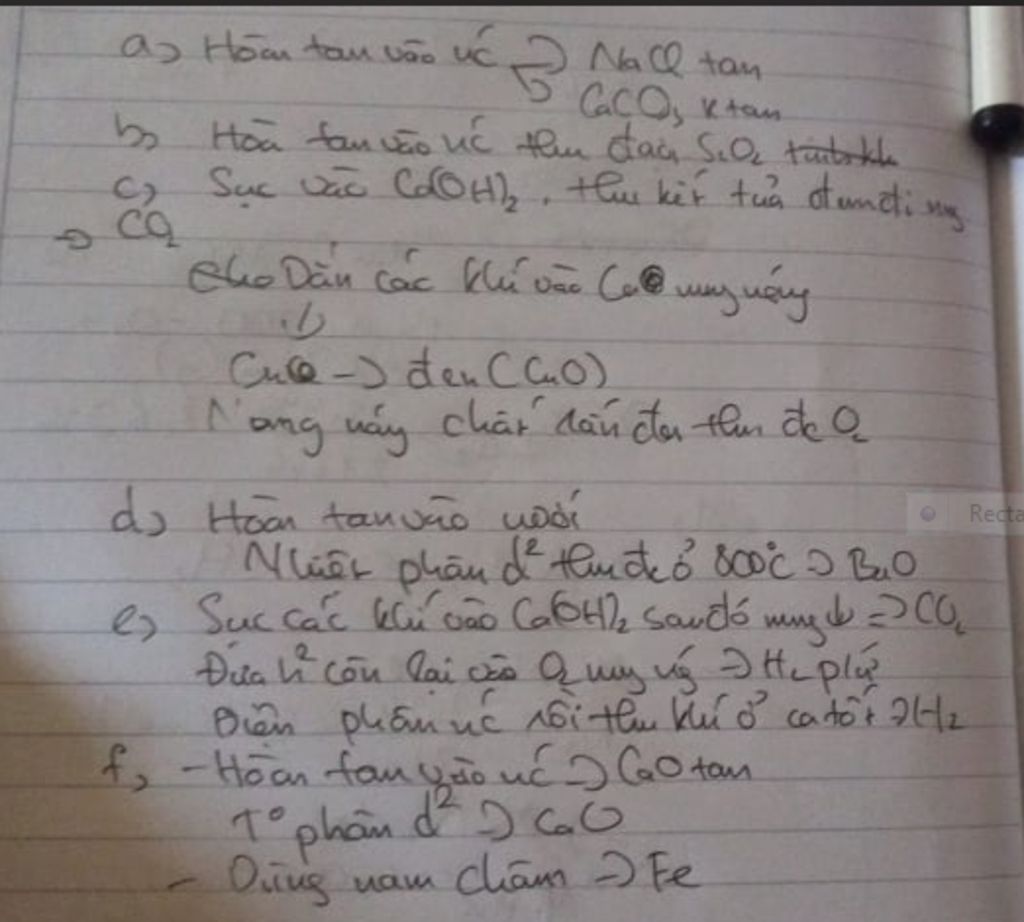 a) Hòan tan vào nc => NaCl tan
CaCO3 k tan
b) Hòa tan vào nc thu đc SiO2
c) Sục vào Ca(OH)2, thu kết tủa đem đi nung
=> CO2
Dẫn các khí vào Cu nung nóng
Cu -> đen (CuO)
Nung nóng chất rắn đen thu đc O2
d) Hòan tan vào nước
Nhiệt phân d2 thu đc ở 800°C => BaO
e) Sục các khí vào Ca(OH)2 sau đó nung ↓ => CO2
Đưa h2 còn lại vào O2 nung
Điện phân nc rồi thu khí ở catốt => H2
f, - Hòan tan vào nc => CaO tan
T° phân d2 => CaO
- Dùng nam châm => Fe
Recta